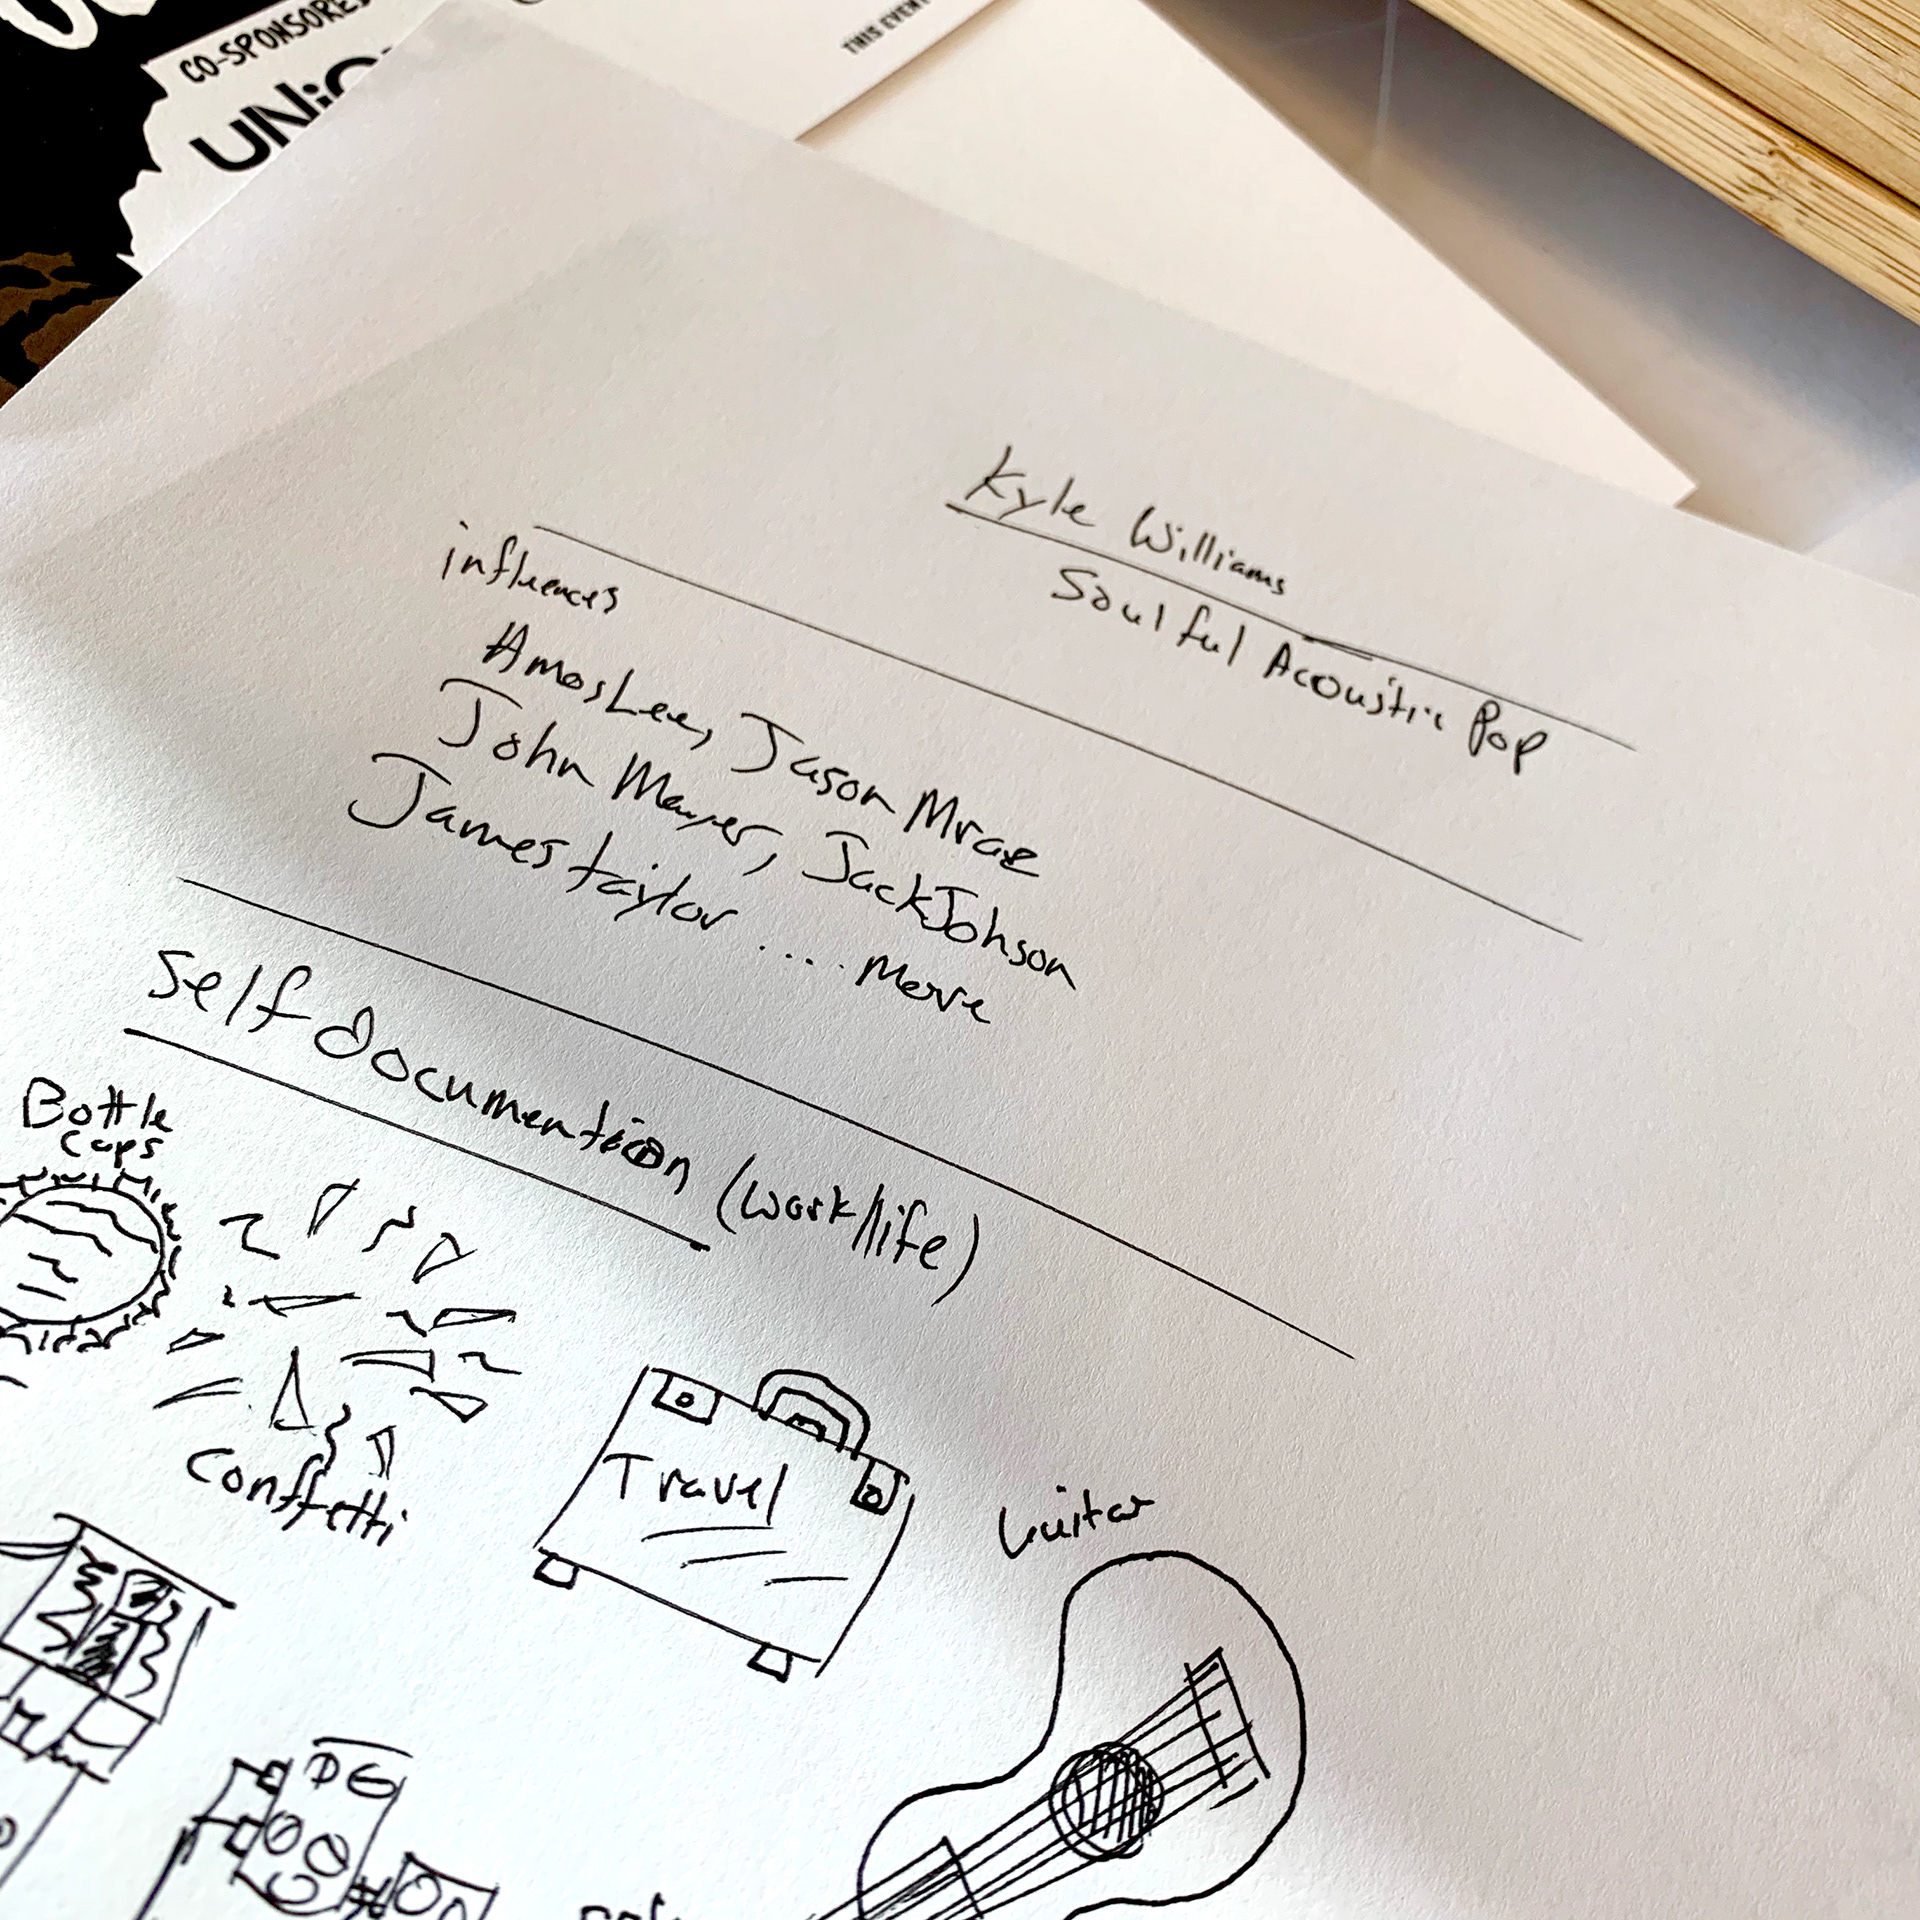 CO-SPONSORED
THIS EVENT
Kyle Williams
Soulful Acoustic Pop
influences
Amos Lee, Jason Mraz
John Mayer, Jack Johnson
James taylor .... more
Self documention (work/life)
Bottle
Caps
Conffetti
Travel
Guitar
DG